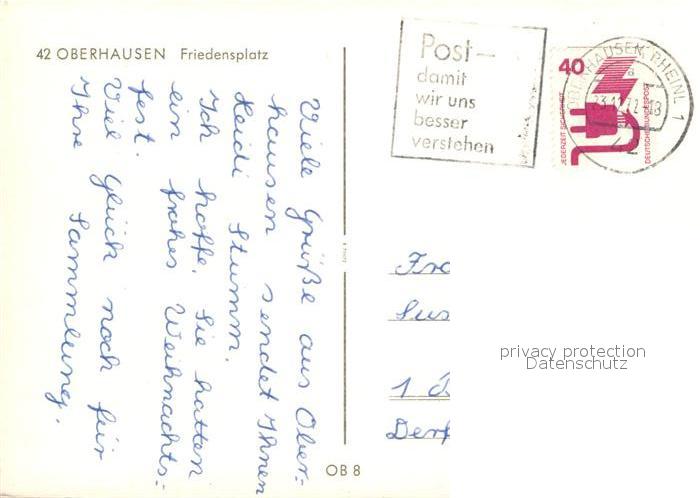 42 OBERHAUSEN Friedensplatz
Viele Grüße aus Ober-
hausen sendet Ihnen
Heidi Stumm.
Ich hoffe, Sie hatten
ein frohes Weihnachts-
fest.
Viel Glück noch für
Ihre Sammlung.
Post –
damit
wir uns
besser
verstehen
40
JEDERZEIT SICHERHEIT
DEUTSCHE BUNDESPOST
OBERHAUSEN, RHEINL 1
a
42
Sus
1
privacy protection
Datenschutz
OB 8